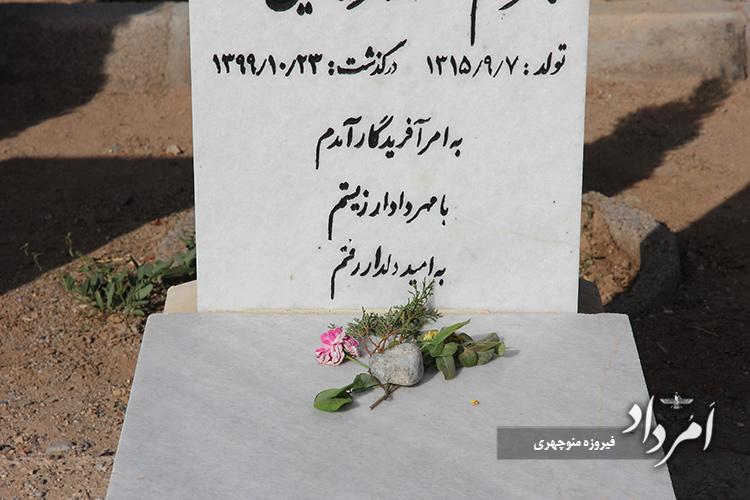 تولد : ۱۳۱۵/۹/۷ درگذشت : ۱۳۹۹/۱۰/۲۳
به امر آفریدگار آمدم
با مهر دادار زیستم
به امید دلدار رفتم
اَمُرداد
فیروزه منوچهری